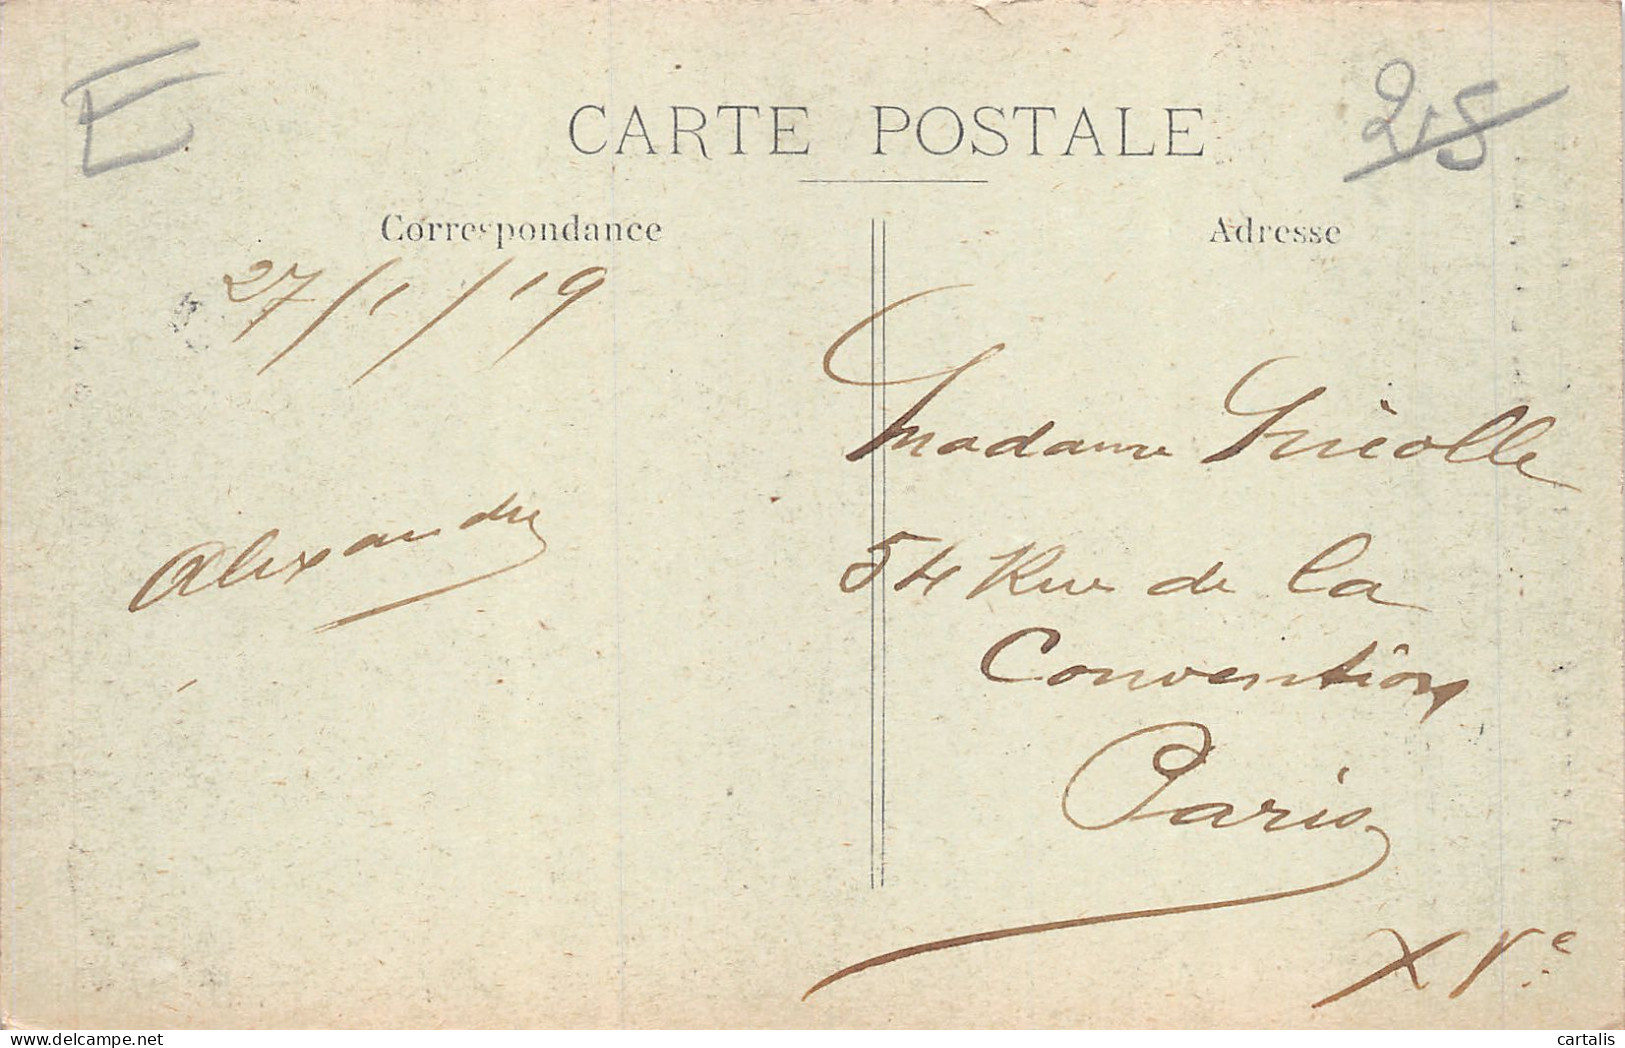 E
CARTE POSTALE
215
Correspondance
Adresse
27/1/19
Alexandre
Madame Nicolle
54 Rue de la
Convention
Paris
XVe
delcampe.net
cartalis